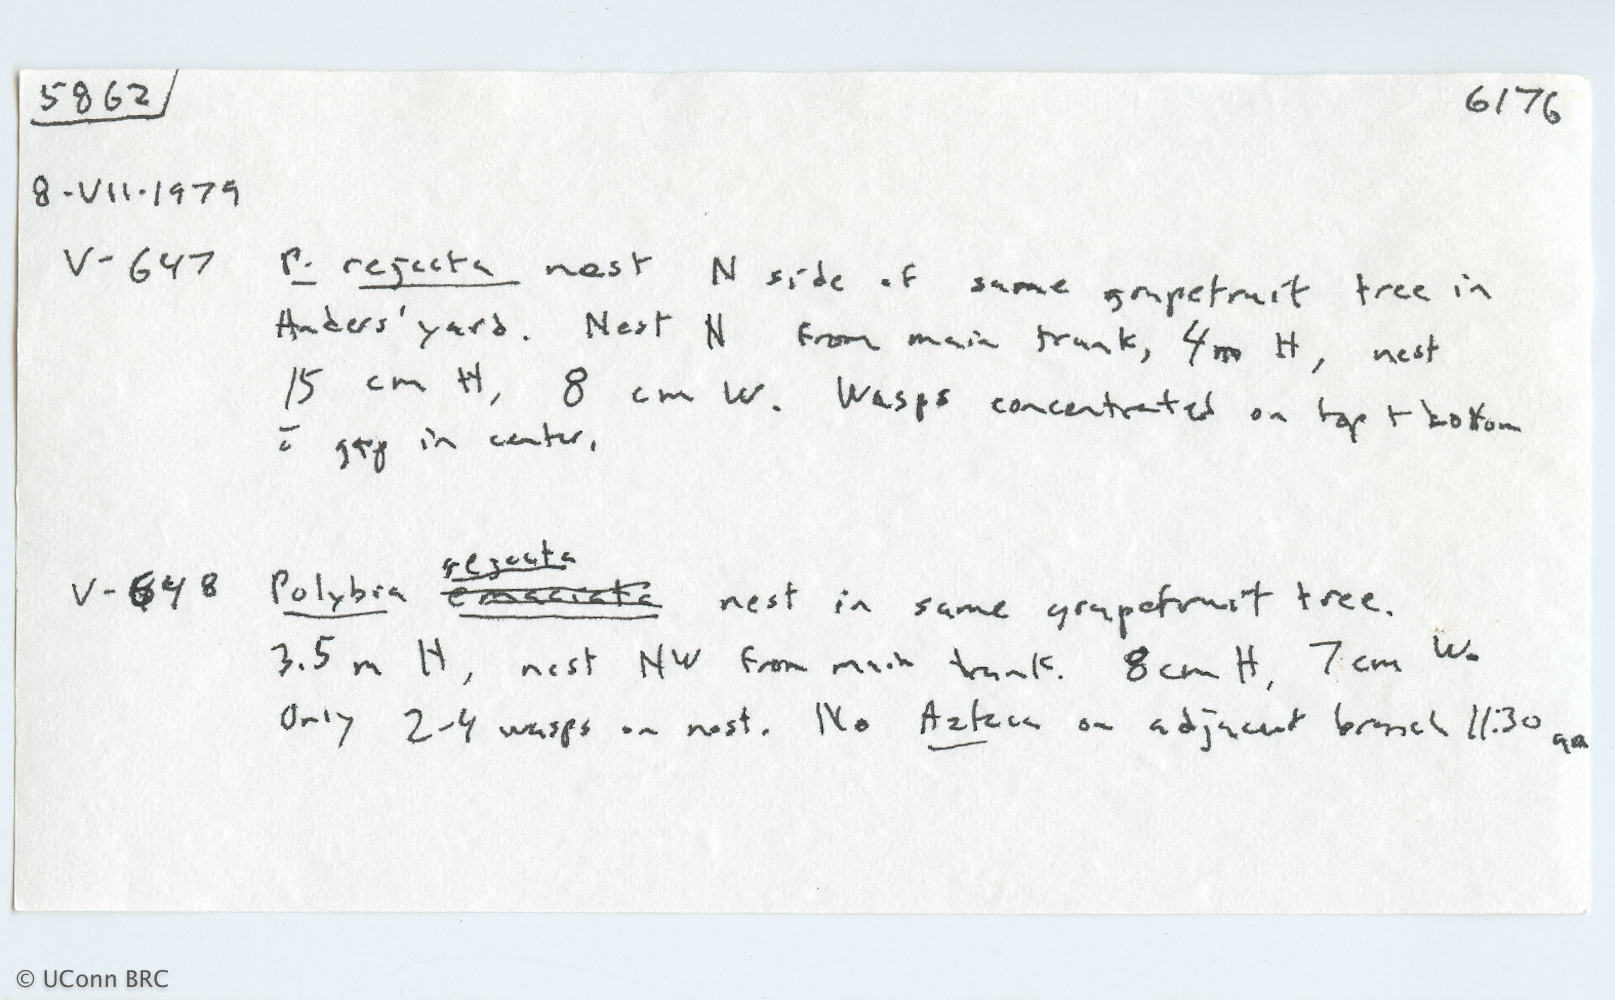 5862
6176
8-VII-1979
V-647 P. rejecta nest N side of same grapefruit tree in
Anders' yard. Nest N from main trunk, 4m H, nest
15 cm H, 8 cm W. Wasps concentrated on top + bottom
c̄ gap in center.
rejecta
V-648 Polybia emaciata nest in same grapefruit tree.
3.5 m H, nest NW from main trunk. 8cm H, 7cm W.
Only 2-4 wasps on nest. No Azteca on adjacent branch 11:30 am
© UConn BRC